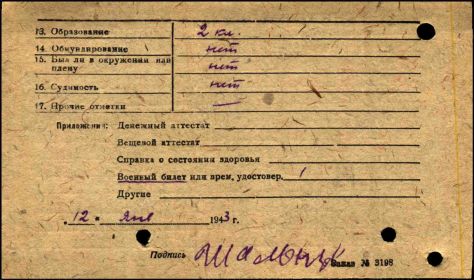 13. Образование 2 кл.
14. Обмундирование нет
15. Был ли в окружении или
плену нет
16. Судимость нет
17. Прочие отметки —
Приложения: Денежный аттестат
Вещевой аттестат
Справка о состоянии здоровья
Военный билет или врем. удостовер. 1
Другие
„12“ янв 1943 г.
Подпись
Заказ № 3198